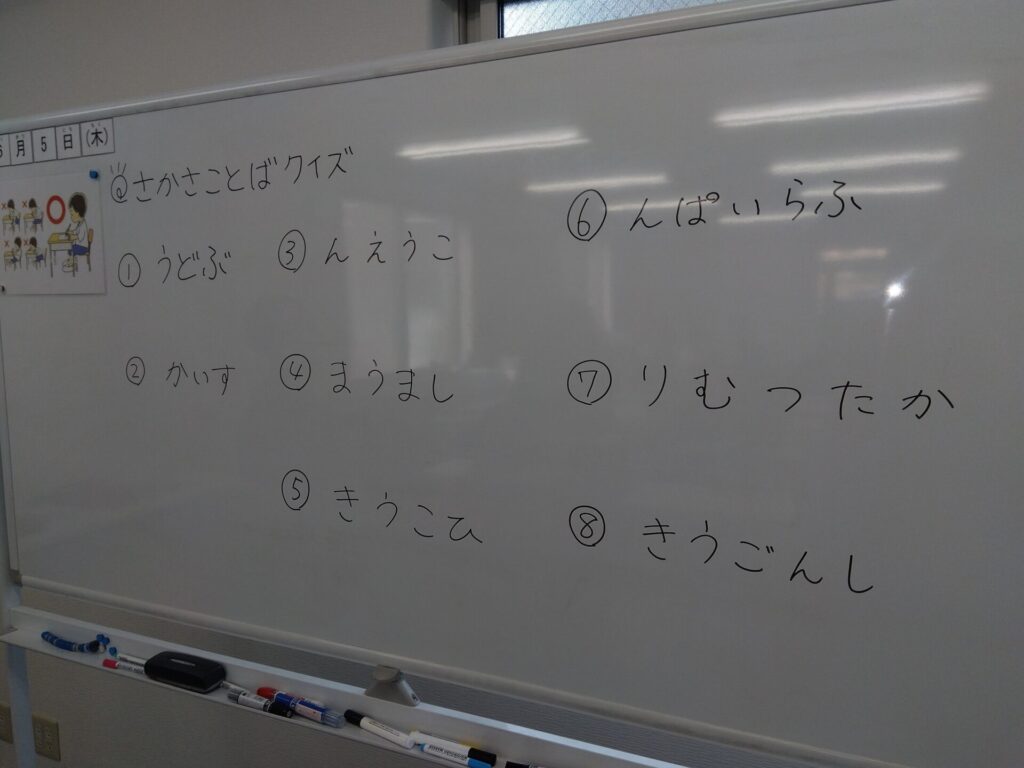 月 5 日 (木)
さかさことばクイズ
① うどぶ
② かいす
③ んえうこ
④ まうまし
⑤ きうこひ
⑥ んぱいらふ
⑦ りむつたか
⑧ きうごんし